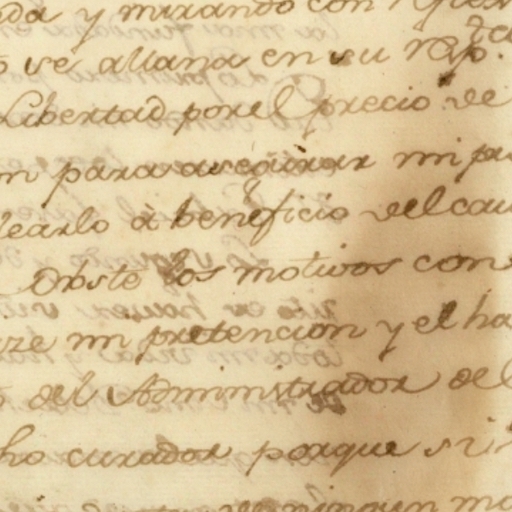 oda y mirando con
o se allana en su resp.
Libertad por el precio de
n para asegurar mi pr
learlo à beneficio del cau
Obste los motivos con
ze mi pretencion y el ha
o del Administrador del
ho curador porque si
ningun mo